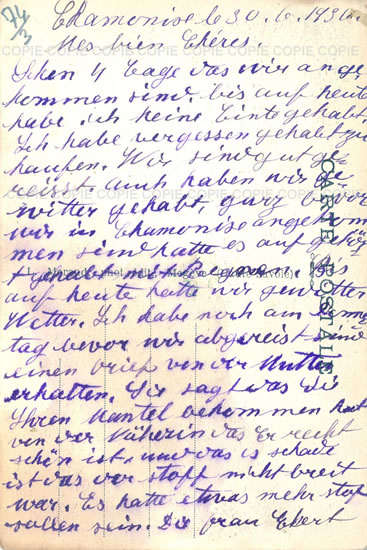 74
3
Chamonise le 30. 6. 1936.
Mes bien Chéres.
Schon 4 Tage das wir ange
kommen sind. bis auf heute
habe ich keine Tinte gehabt.
Ich habe vergessen gehabt zu
kaufen. Wir sind gut ge
reisst. auch haben wir ge
witter gehabt, gurz bevor
wir in Chamonise angekom
men sind hatte es auf gehör
t
auf heute hatte wir gewitter
Wetter. Ich habe noch am
tag bevor wir abgereist sind
einen brief von der Mutter
erhalten. Sie sagt was Sie
Ihren Mantel bekommen hat
von der Näherin das Er recht
schön ist. und was is schade
ist das der stoff nicht breit
war. Es hatte etwas mehr stof
sollen sein. Die frau Ekert
CARTE POSTALE
COPIE COPIE COPIE COPIE COPIE